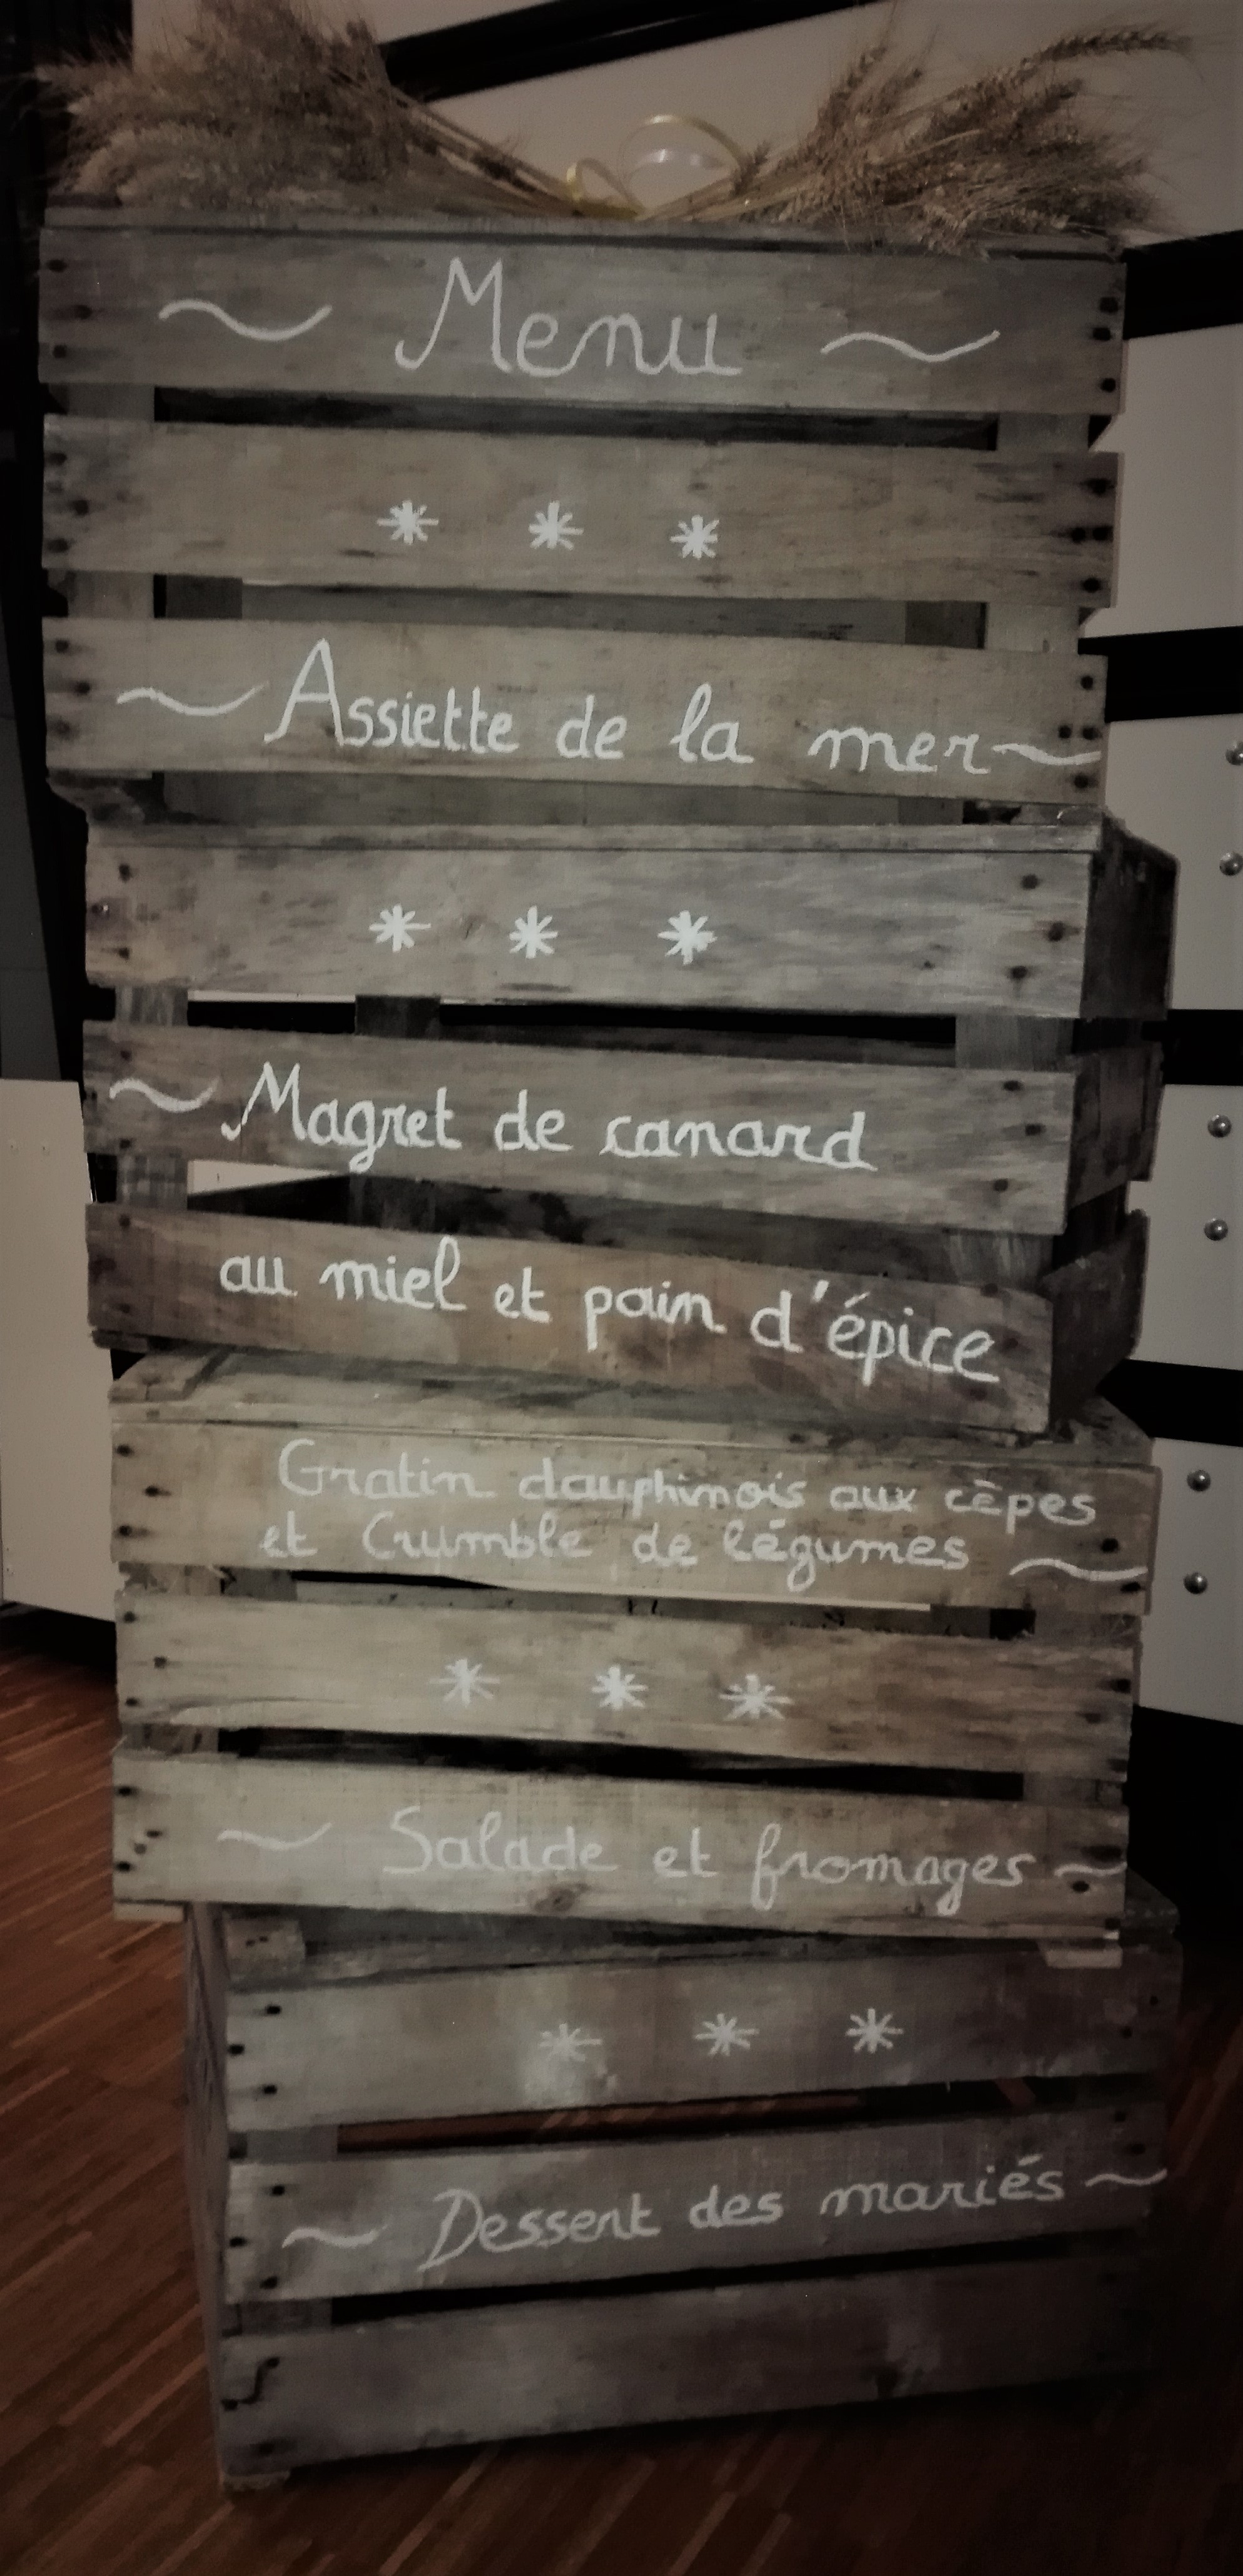 ~ Menu ~
* * *
~ Assiette de la mer ~
* * *
~ Magret de canard
au miel et pain d'épice
Gratin dauphinois aux cèpes
et Crumble de légumes ~
* * *
~ Salade et fromages ~
* * *
~ Dessert des mariés ~